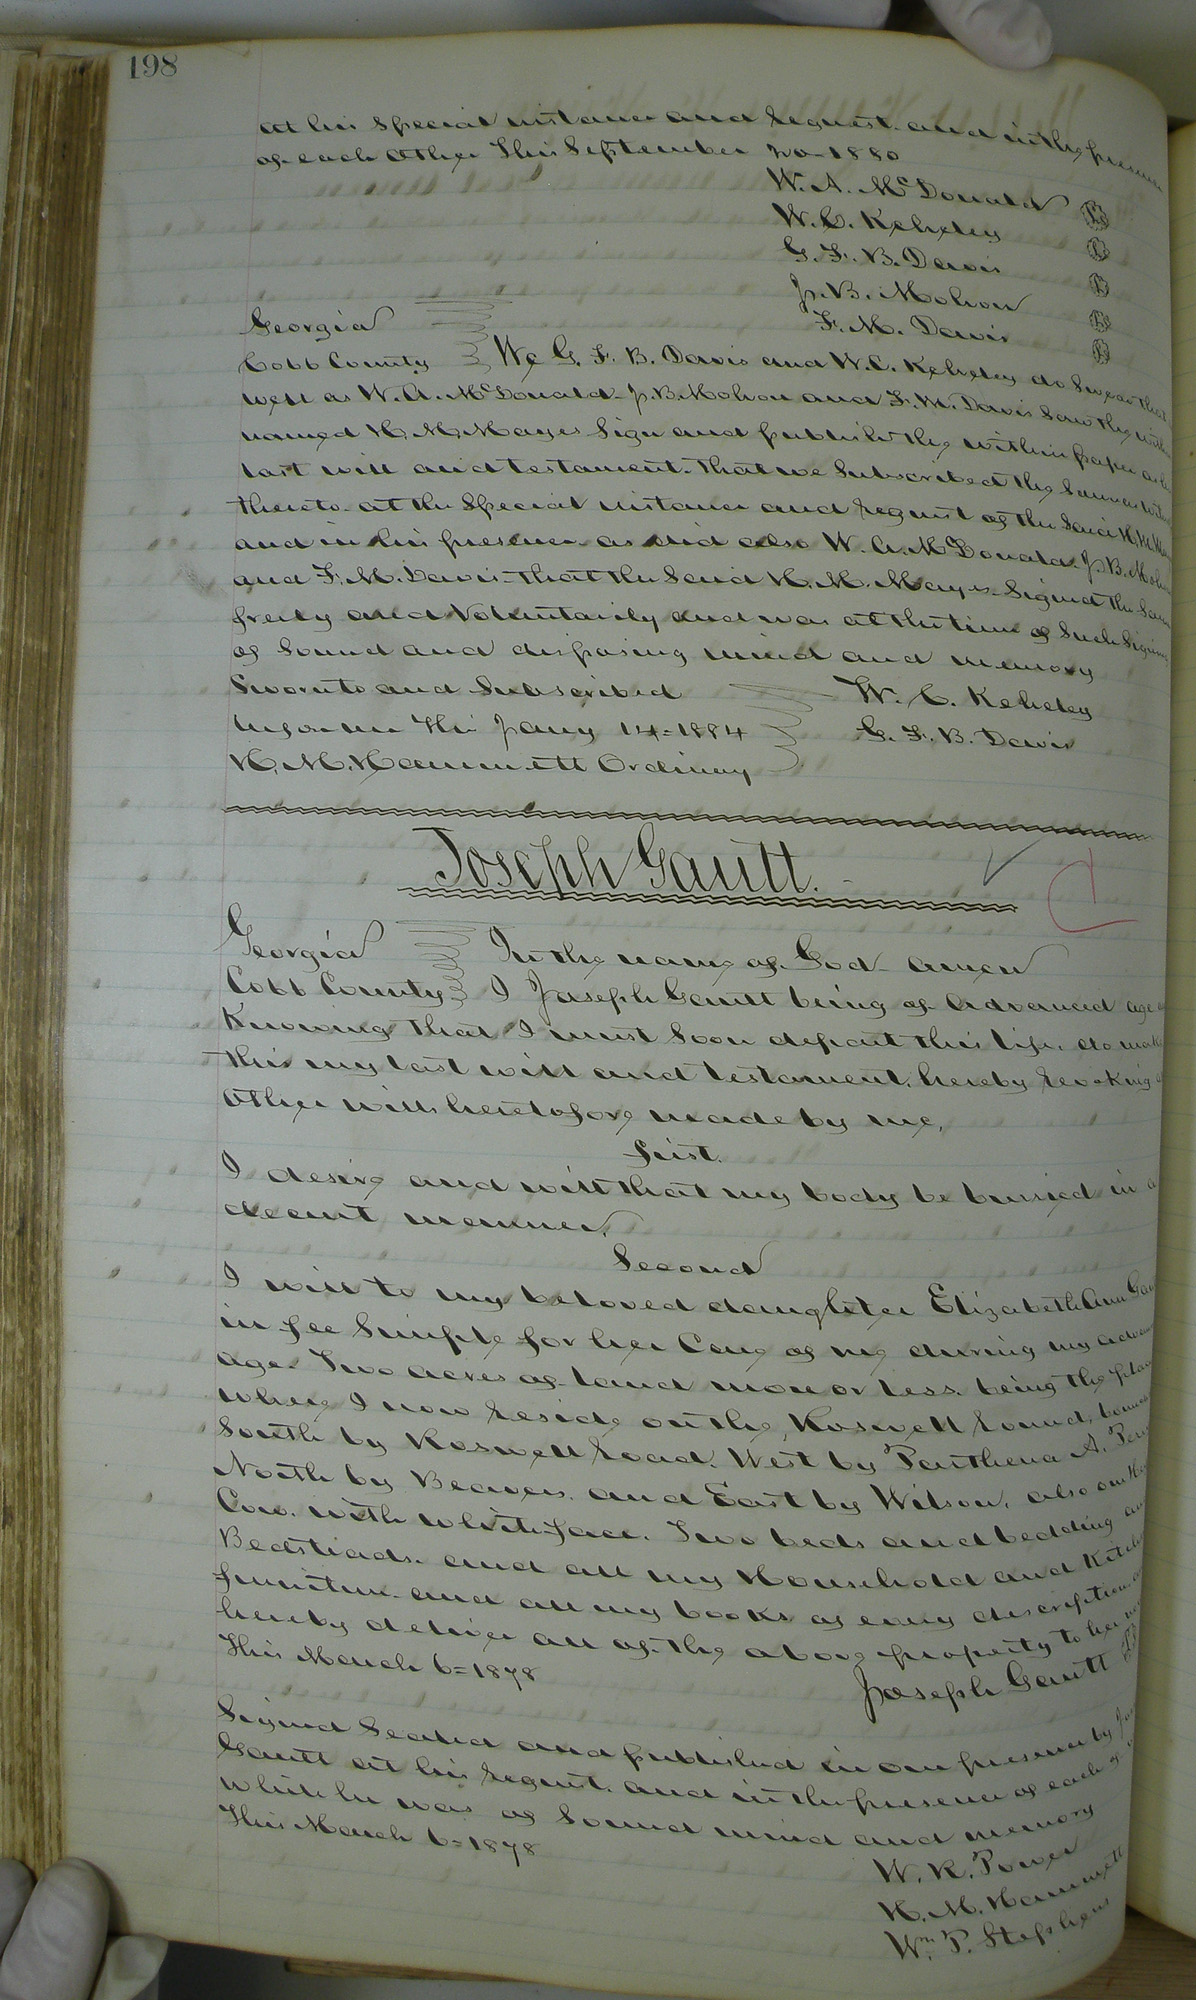 198
at his special instance and request and in the presence
of each other This September 20 1880
W. A. McDonald
W. C. Kelveley
G. F. B. Davis
J. B. Mohon
F. M. Davis
Georgia
Cobb County We G. F. B. Davis and W. C. Kelveley do swear that
well as W. A. McDonald J. B. Mohon and F. M. Davis saw the within
named H. M. Mayes sign and publish the within paper as his
last will and testament. that we subscribed the same as
thereto at the special instance and request of the said H. M.
and in his presence as did also W. A. McDonald J. B. Mohon
and F. M. Davis that the said H. M. Mayes signed the same
freely and voluntarily and was at the time of such signing
of sound and disposing mind and memory
Sworn to and subscribed W. C. Kelveley
before me This Jany 14 = 1884 G. F. B. Davis
H. M. Hammett Ordinary
Joseph Gautt.
Georgia In the name of God amen
Cobb County I Joseph Gautt being of advanced age
Knowing that I must soon depart this life, do make
this my last will and testament, hereby revoking
other wills heretofore made by me,
first.
I desire and will that my body be buried in a
decent manner,
Second
I will to my beloved daughter Elizabeth Ann
in fee simple for her care of me during my
age. Two acres of land more or less. being the place
where I now reside on the Roswell
South by Roswell road, West by Parthena A.
North by Beaver. and East by Wilson, also one
Cow. with white face. Two beds and bedding
Bedsteads. and all my Household and Kitchen
furniture and all my books of every description
hereby deliver all of the above property to her
This March 6 = 1878 Joseph Gautt
Signed Sealed and published in our presence by
Gautt at his request. and in the presence of each
while he was of sound mind and memory
This March 6 = 1878
W. R. Power
H. M. Hammett
Wm. P. Stephens